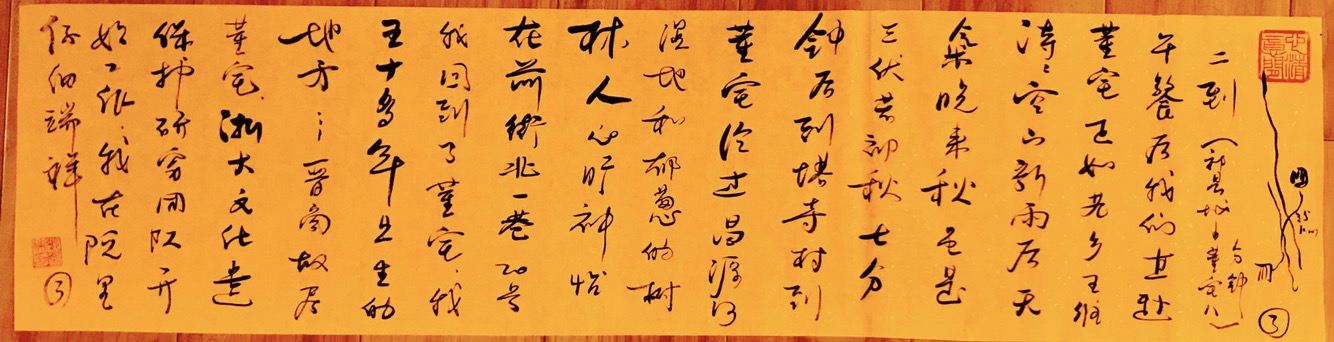 二到（祁县城中董宅八）
午餐后我们直赴
董宅正如老乡王维
空山新雨后天
气晚来秋
三伏若初秋 七分
钟后到塔寺村到
董宅 过昌源河
湿地和郁葱的树
林人心旷神怡
在前街北一巷20号
我回到了董宅、我
五十多年 生的
地方：晋商故居
董宅、浙大文化遗
保护研究团队
我在院里
仔细端祥
③
③